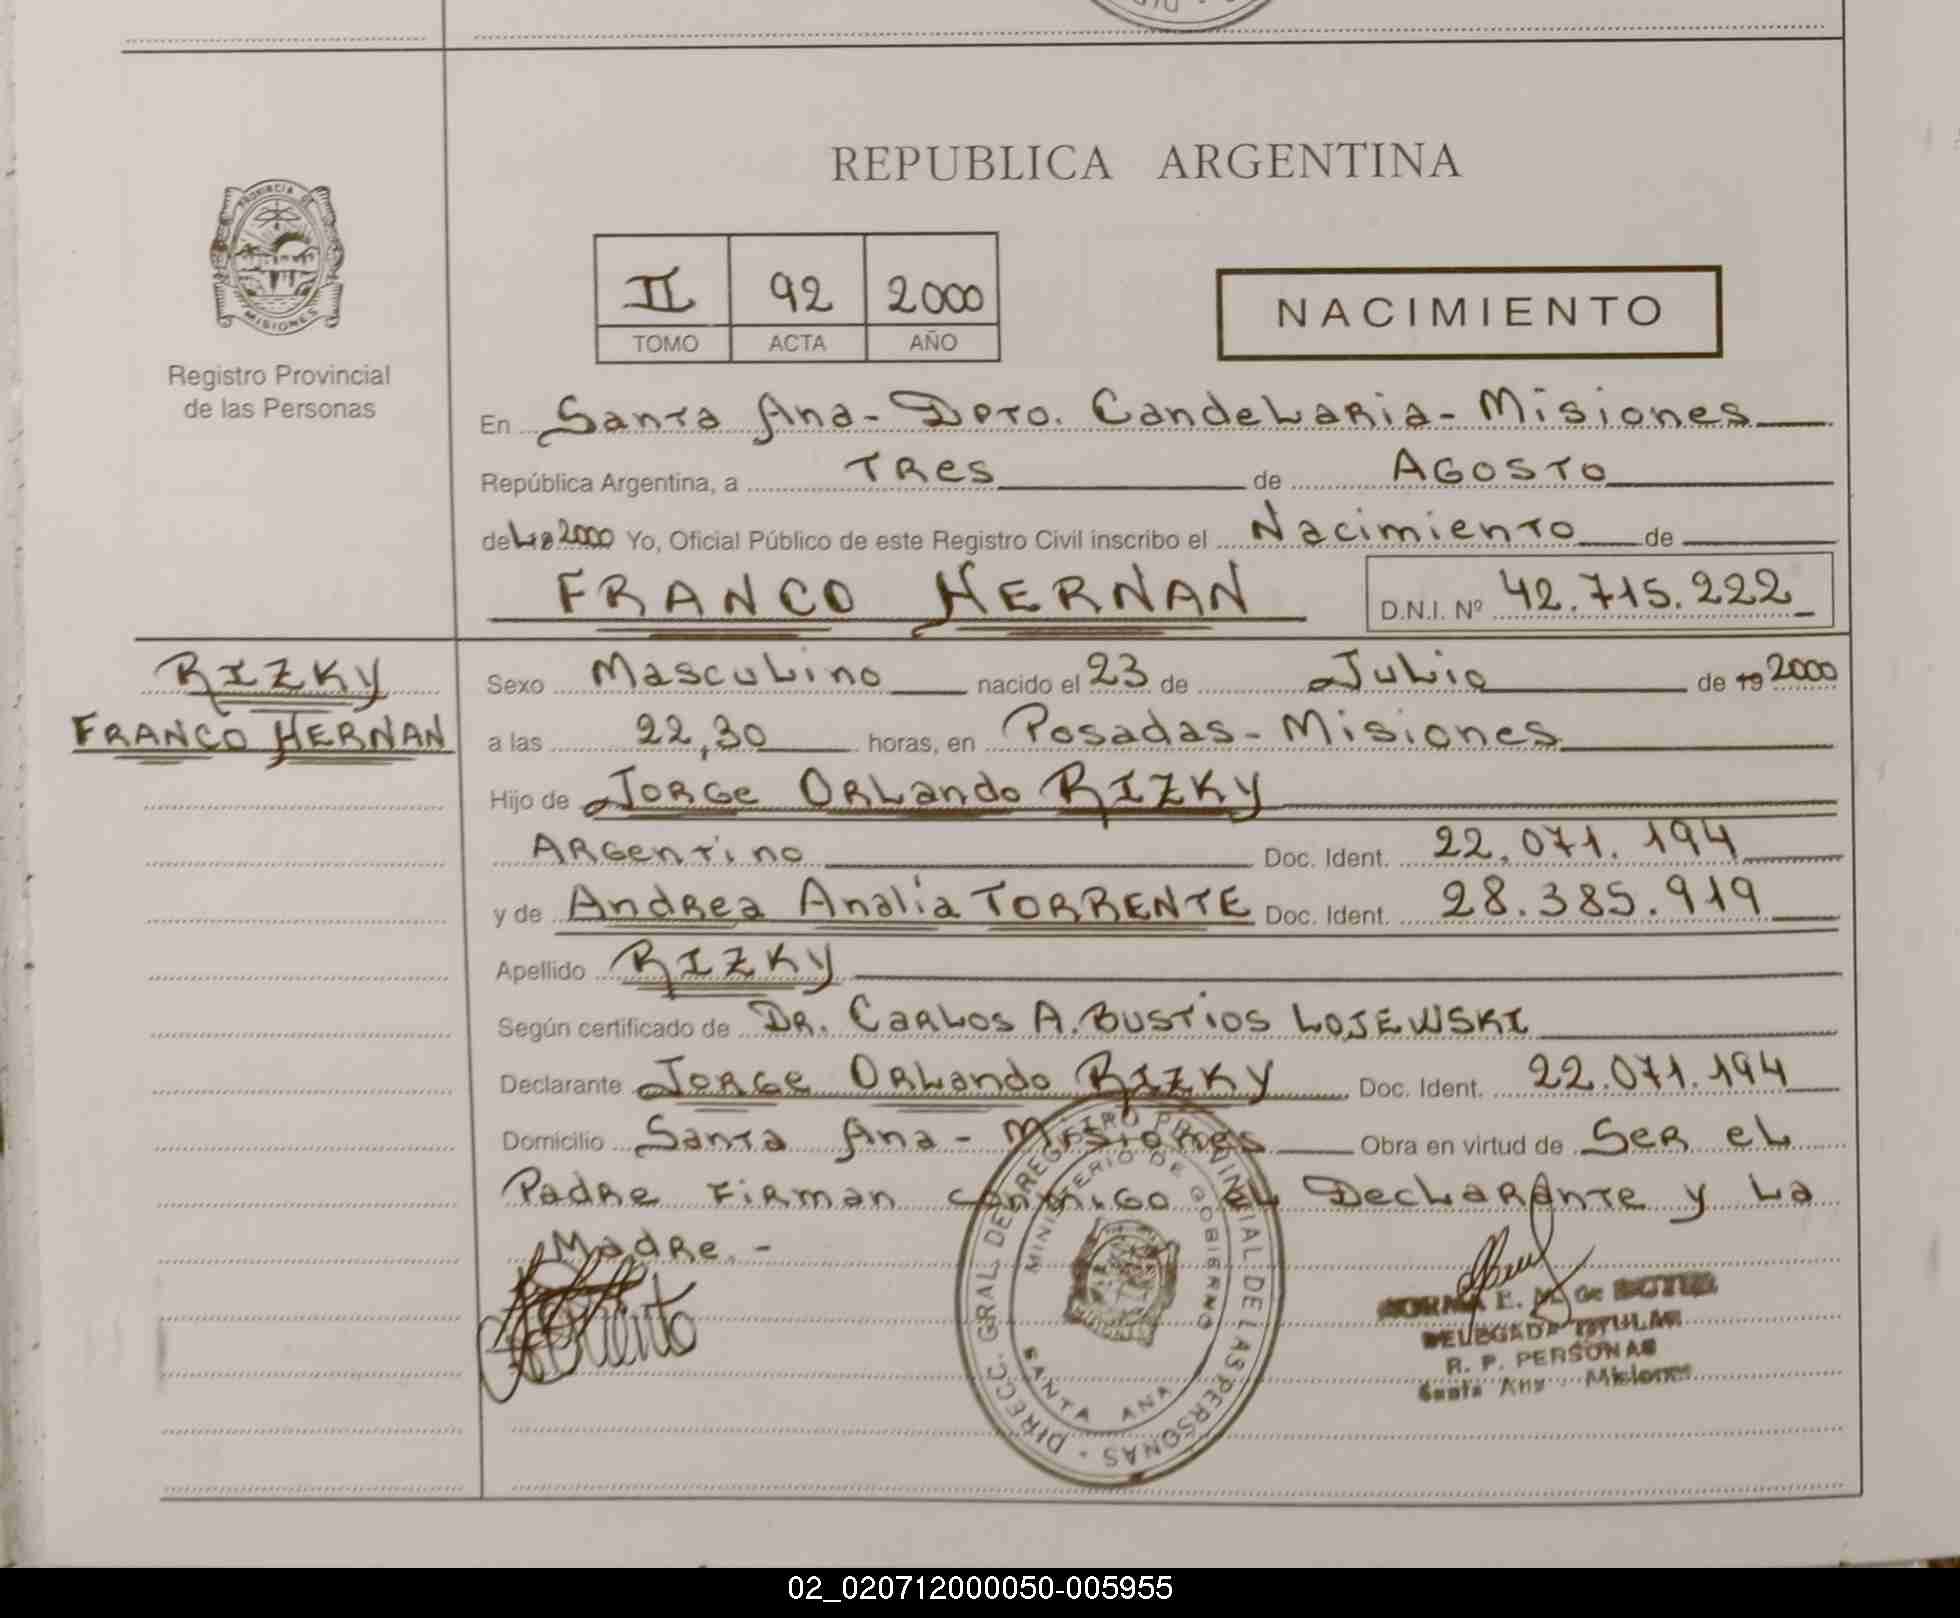 REPUBLICA ARGENTINA
PROVINCIA DE
MISIONES
Registro Provincial
de las Personas
II 92 2000
TOMO ACTA AÑO
NACIMIENTO
En Santa Ana - Dpto. Candelaria - Misiones
República Argentina, a Tres de Agosto
del 2000 Yo, Oficial Público de este Registro Civil inscribo el Nacimiento de
FRANCO HERNAN D.N.I. Nº 42.715.222
RIZKY
FRANCO HERNAN
Sexo Masculino nacido el 23 de Julio de 19 2000
a las 22,30 horas, en Posadas - Misiones
Hijo de Jorge Orlando RIZKY
Argentino Doc. Ident. 22.071.194
y de Andrea Analia TORRENTE Doc. Ident. 28.385.919
Apellido RIZKY
Según certificado de Dr. Carlos A. Bustios Lojewski
Declarante Jorge Orlando RIZKY Doc. Ident. 22.071.194
Domicilio Santa Ana - Misiones Obra en virtud de Ser el
Padre Firman conmigo el Declarante y la
Madre. -
DIRECC. GRAL. DEL REGISTRO PROVINCIAL DE LAS PERSONAS
MINISTERIO DE GOBIERNO
SANTA ANA
NORMA E. M. de
DELEGADA TITULAR
R. P. PERSONAS
Santa Ana - Misiones
02_020712000050-005955